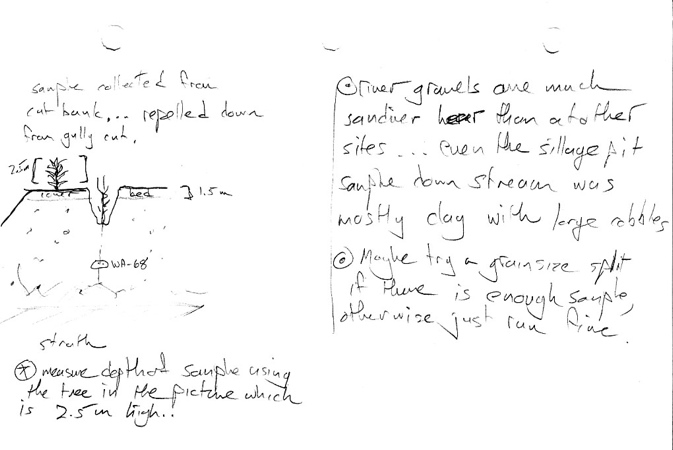 sample collected from
cut bank... repelled down
from gully cut.
2.5m
bed
1.5m
WA-68
strath
* measure depth of sample using
the tree in the picture which
is 2.5m high!!
river gravels are much
sandier than at other
sites... even the sillage pit
sample down stream was
mostly clay with large cobbles
Maybe try a grainsize split
if there is enough sample,
otherwise just run fine.